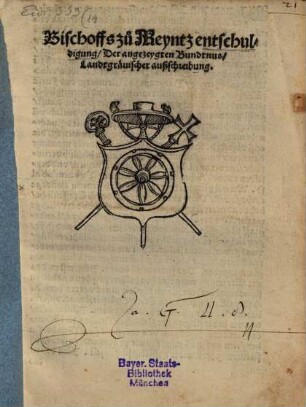 Bischoffs zů Meyntz entschul-
digung/ Der angezeygten Bundtnus/
Landtgräuischer außschreibung.
Bayer. Staats-
Bibliothek
München